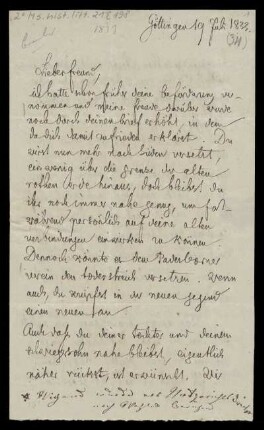 2° Ms. hist. litt. 21
Göttingen 19 Juli 1833.
Lieber freund,
ich hatte schon früher deine beförderung ver-
nommen und meine freude darüber wurde
noch durch deinen brief erhöht, in dem
du dich damit zufrieden erklärst. Du
wirst nun mehr nach süden versetzt,
ein wenig über die grenze der alten
rothen erde hinaus, doch bleibst du
ihr noch immer nahe genug, um fort-
während persönlich auf deine alten
verbindungen einwirken zu können.
Dennoch könnte er dem Paderborner
verein den todesstreich versetzen. Wenn
auch, du knüpfst in der neuen gegend
einen neuen an.
Auch dasz du deiner tochter und deinem
schwiegersohn nahe bleibst, eigentlich
näher rückst, ist erwünscht. Die